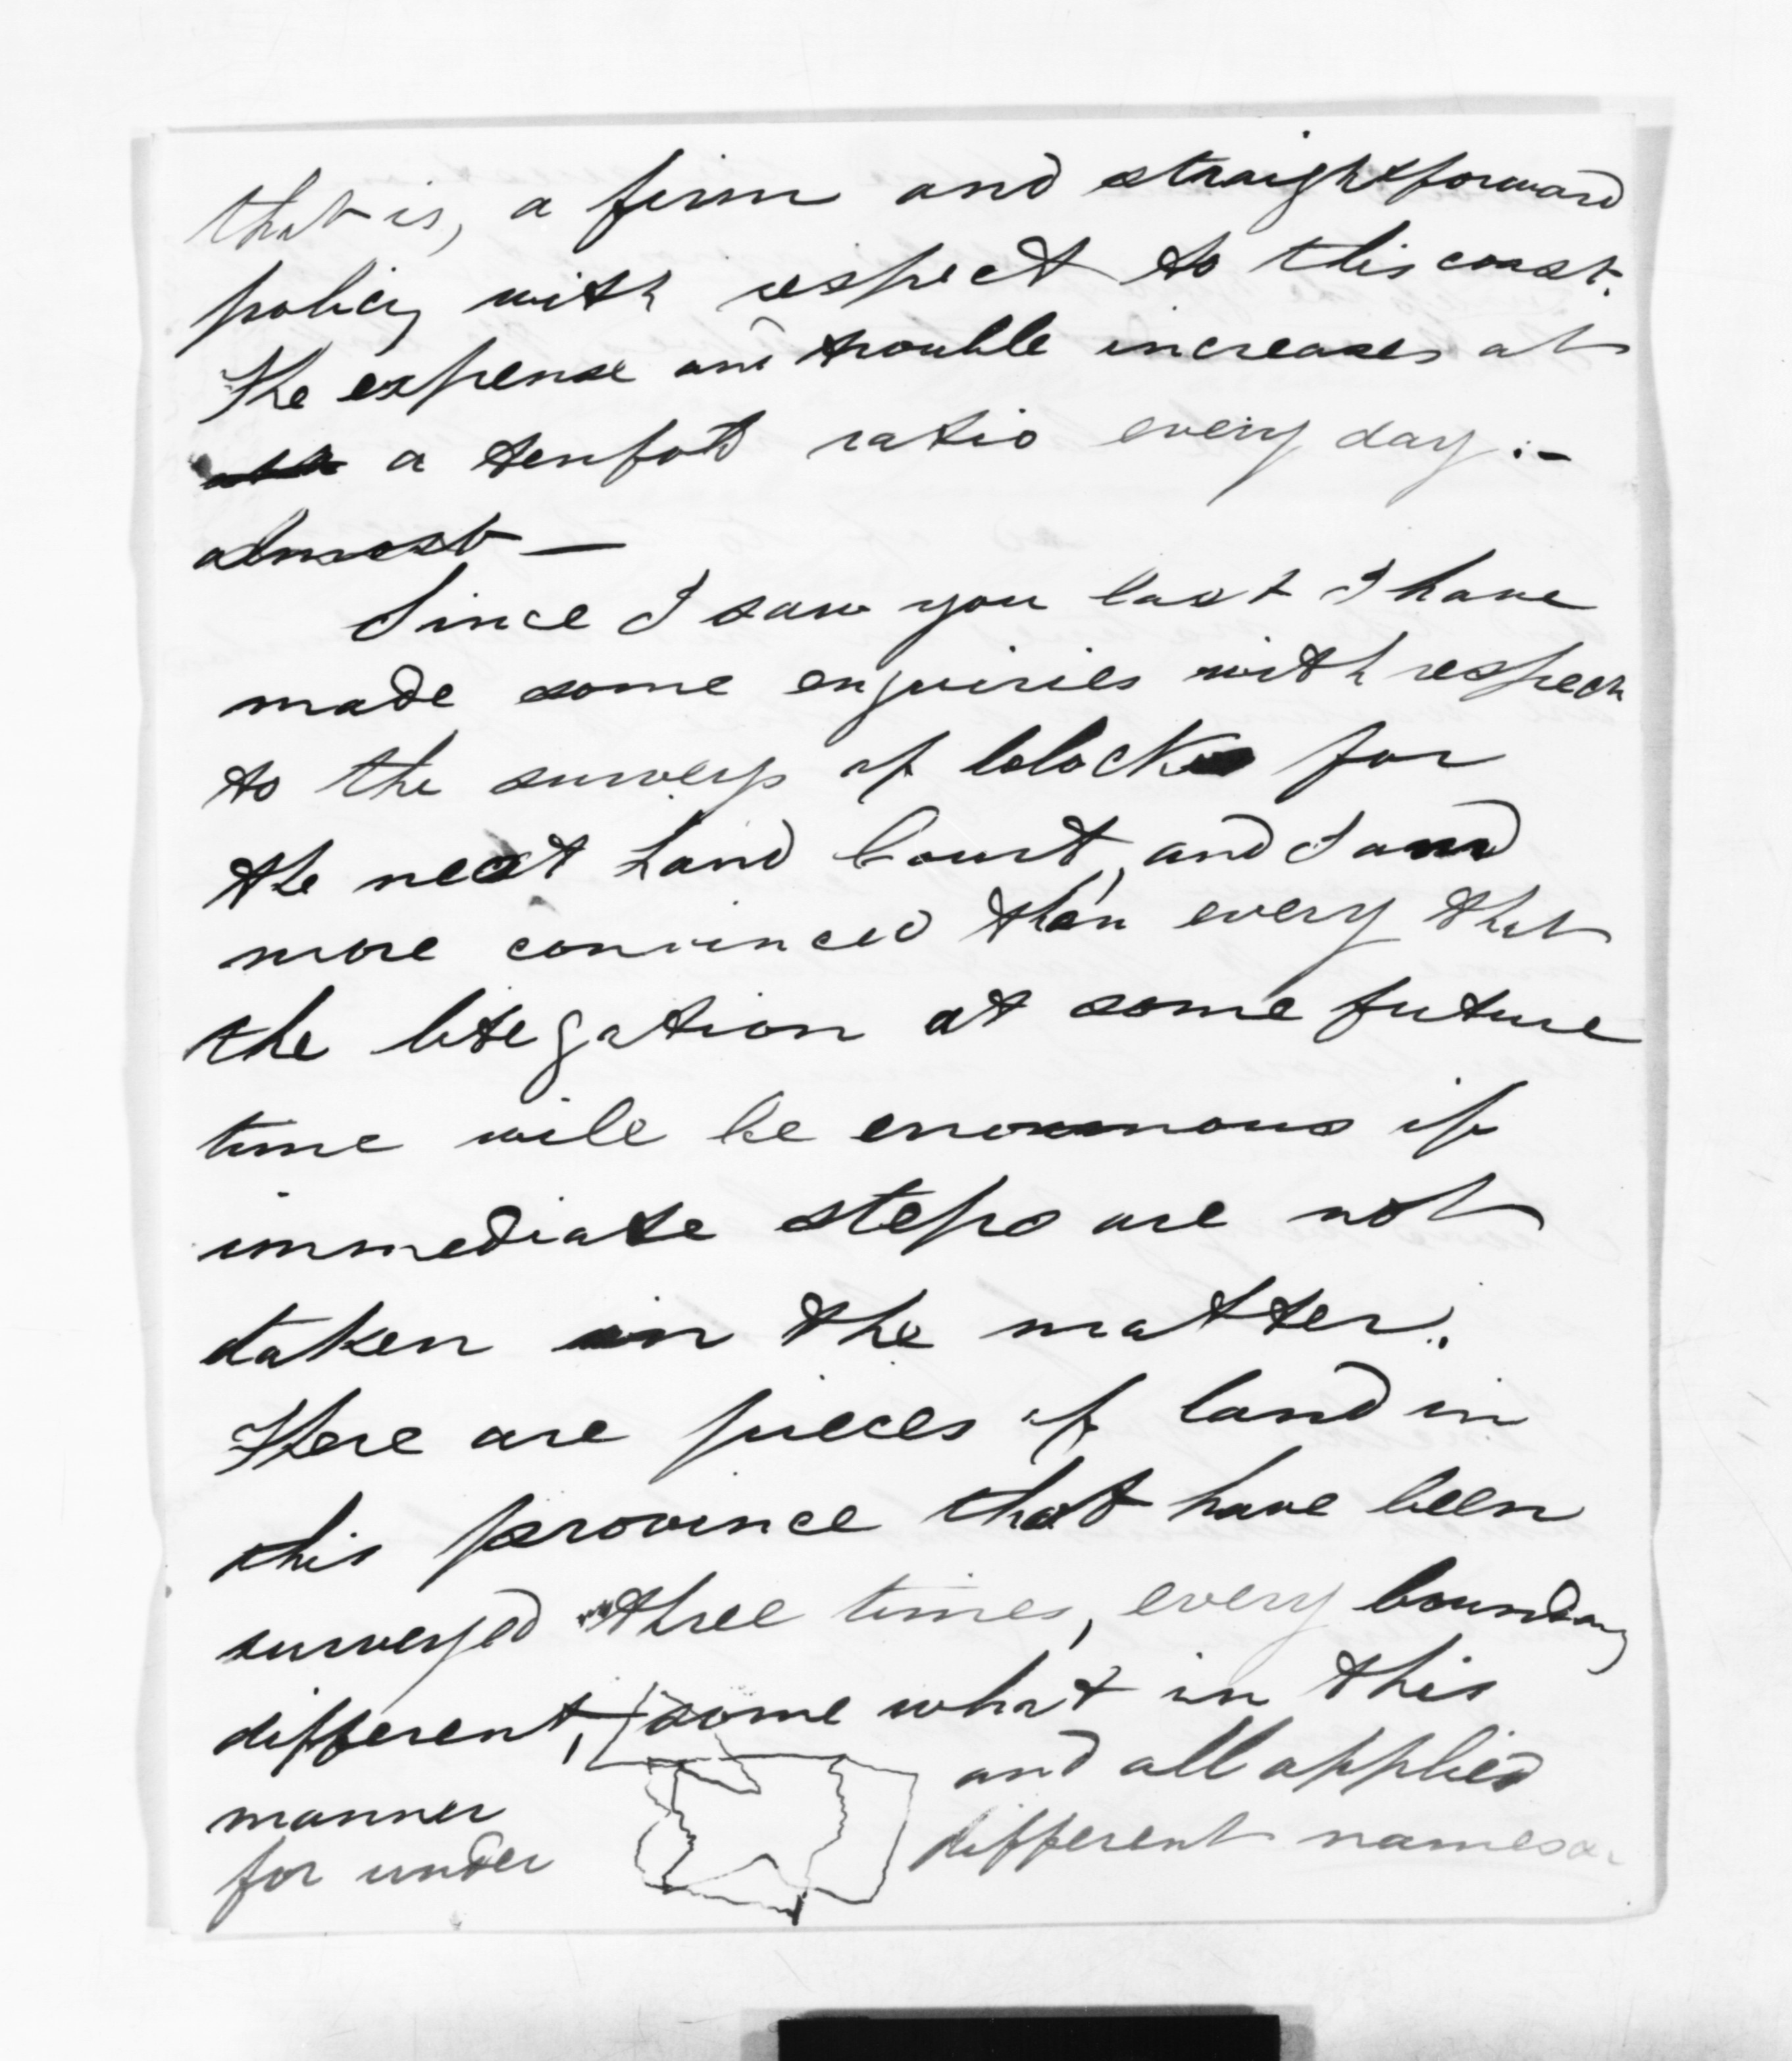 that is, a firm and straightforward
policy with respect to this coast.
The expense and trouble increases at
a tenfold ratio every day :-
almost —
Since I saw you last I have
made some enquiries with respect
to the surveys of blocks for
the next Land Court, and I am
more convinced than every that
the litegation at some future
time will be enormous if
immediate steps are not
taken in the matter.
There are pieces of land in
this province that have been
surveyed three times, every boundary
different, some what in this
manner and all applied
for under different names